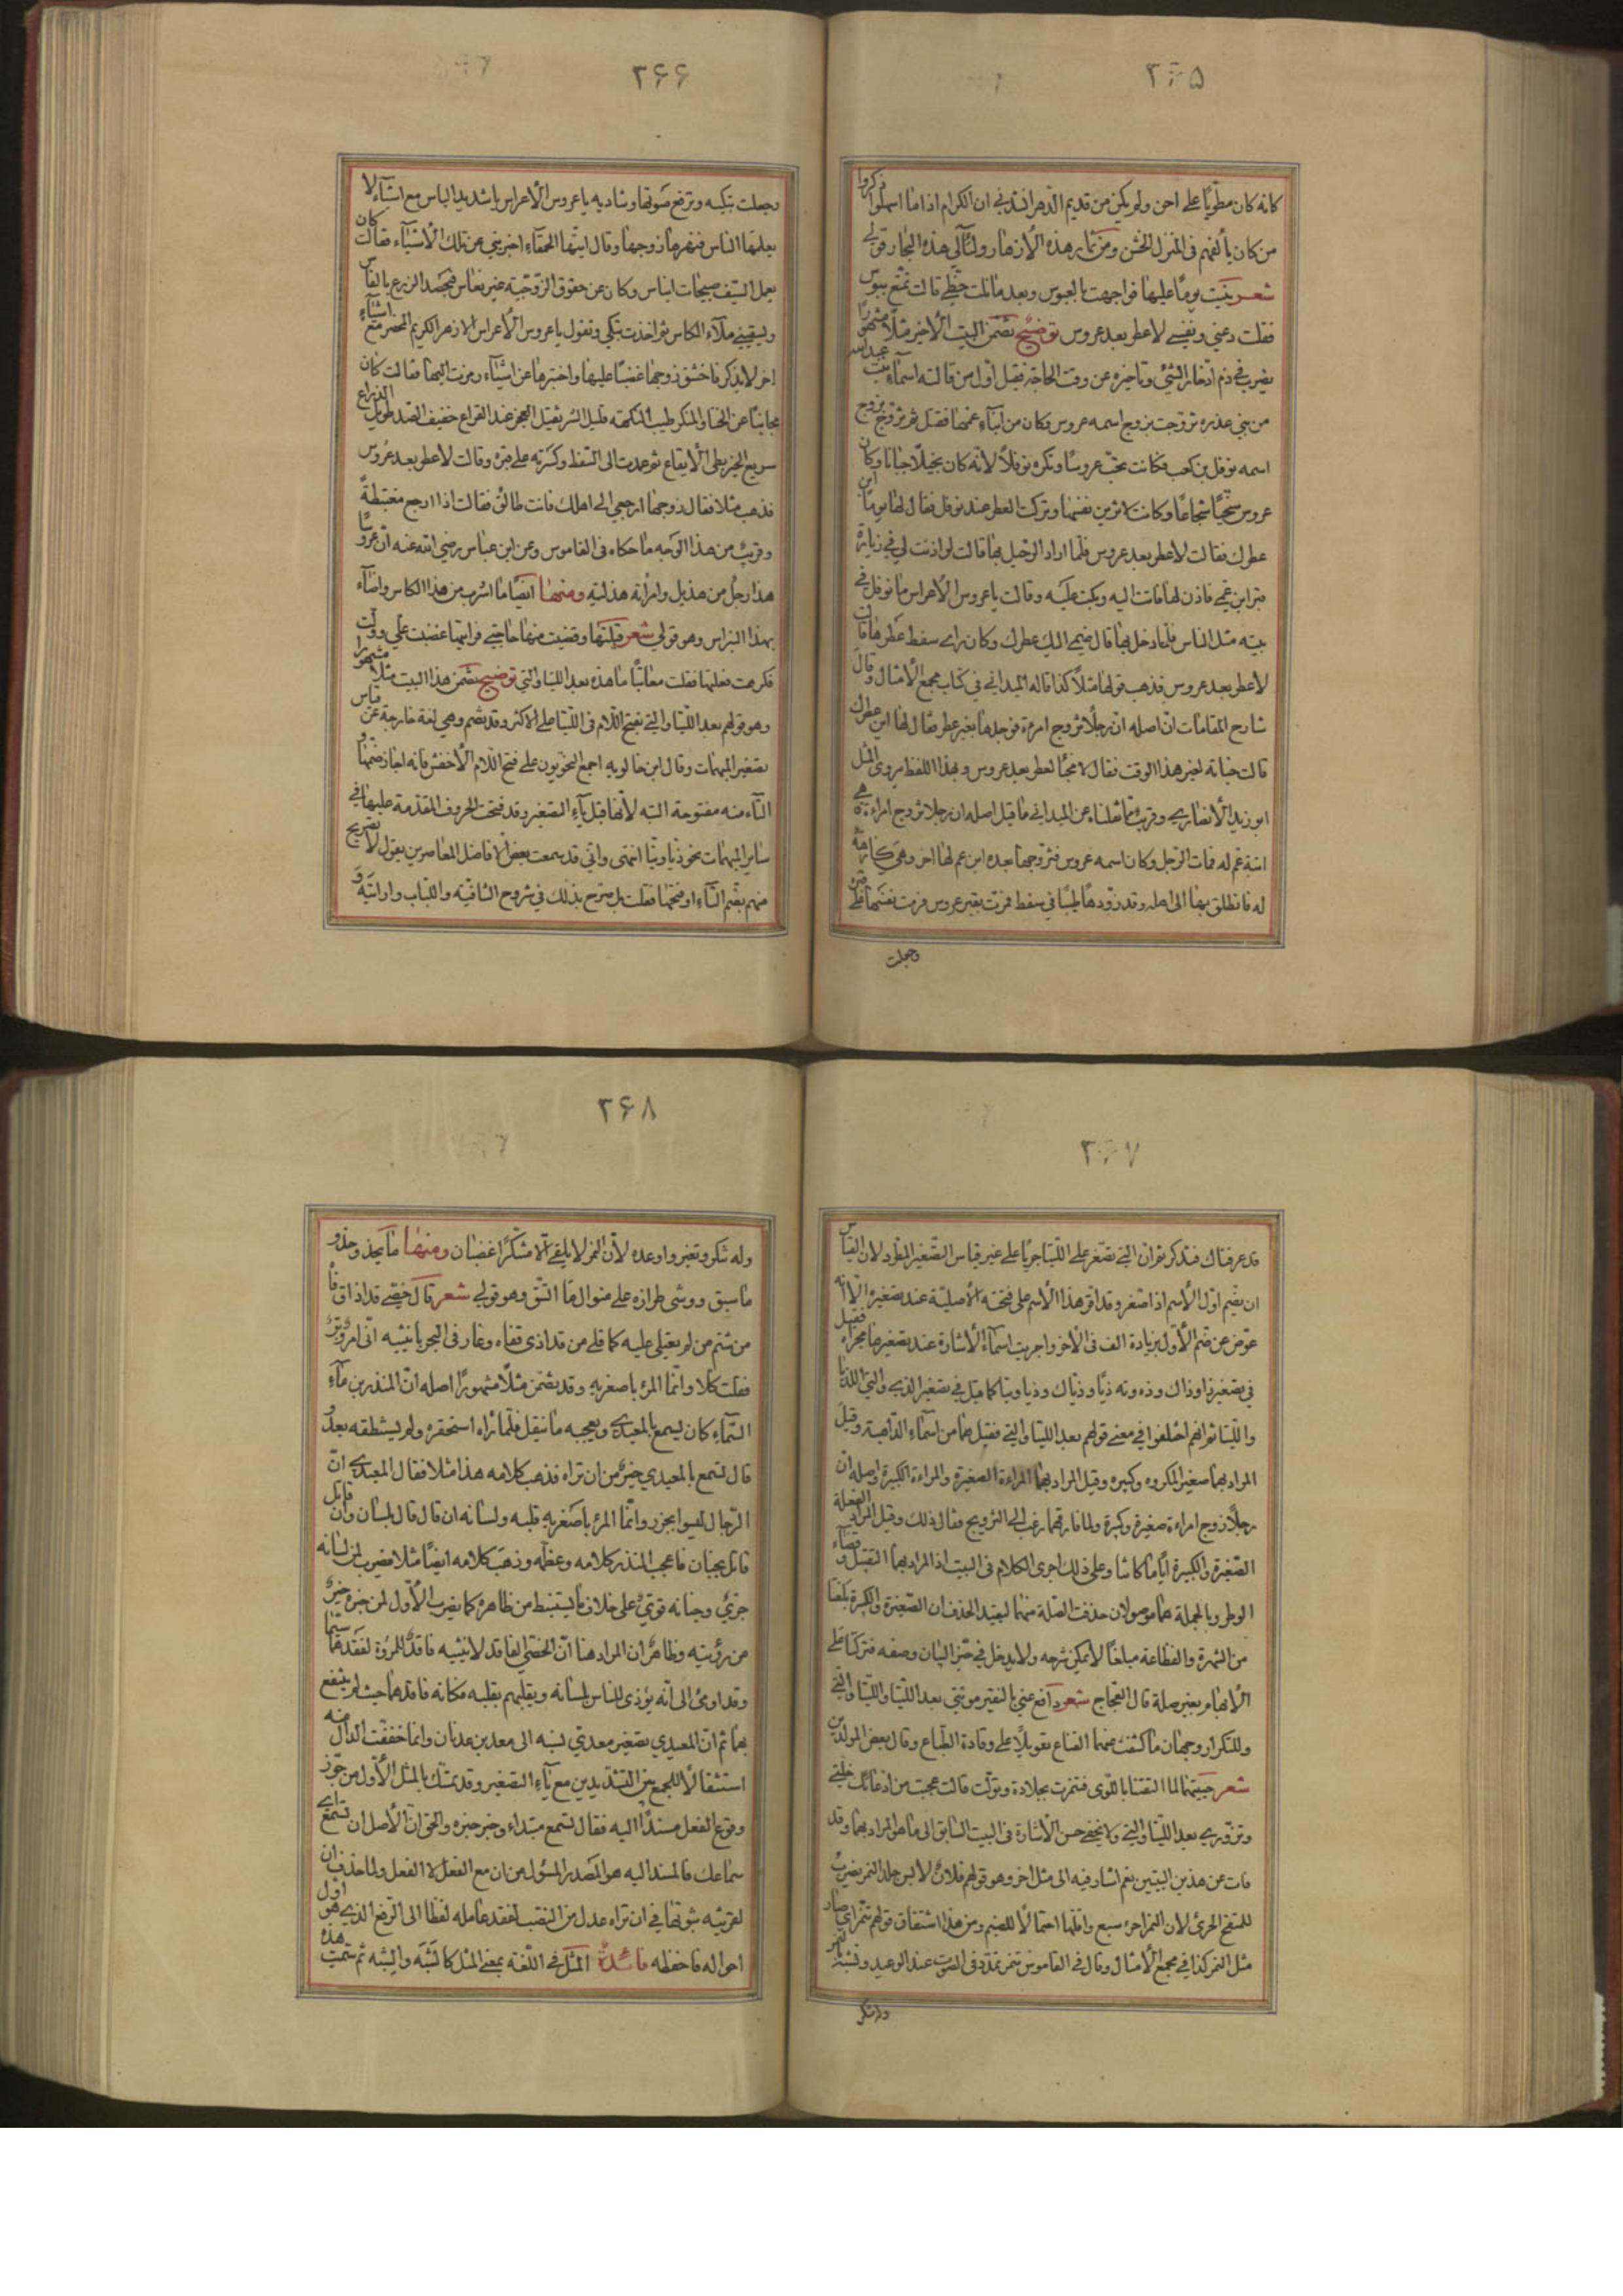 ٢٦٥
كانه كان مطويا على احن ولم يكن من قديم الدهر انشدني ان الكرام اذا ما اسهلوا ذكروا
من كان يألفهم فى المنزل الخشن ومن ثمار هذه الازهار ولئالي هذه البحار قولي
شعر بنيت يوما عليها فواجهت بالعبوس وبعد ما نلت حظي قالت تمتع ببوس
فقلت دعني ونفسي لا عطر بعد عروس توضيح تضمن البيت الاخير مثلا مشهورا
يضرب في ذم ادخار الشئ وتاخيره عن وقت الحاجة فقيل اول من قالته اسماء بنت عبدالله
من بني عذره تزوجت بزوج اسمه عروس وكان من ابناء عمها فقتل ثم تزوج بزوج
اسمه نوفل بن كعب فكانت تحب عروسا وتكره نوفلا لانه كان بخيلا جبانا وكان
عروس سخيا شجاعا وكانت لا تزين نفسها وتركت العطر عند نوفل فقال لها يوما اين
عطرك فقالت لا عطر بعد عروس فلما اراد الرحيل بها قالت لو اذنت لي في زيارة
قبر ابن عمي فاذن لها فاتت اليه وبكت عليه وقالت يا عروس الاعراس ما نوفل في
بيته مثل الناس فلما دخل بها قال ضمي اليك عطرك وكان راى سفط عطرها قالت
لا عطر بعد عروس فذهب قولها مثلا كذا قاله الميداني في كتاب مجمع الامثال وقال
شارح المقامات ان اصله ان رجلا تزوج امرءة فوجدها بغير عطر فقال لها اين عطرك
قالت خبأته لغير هذا الوقت فقال لا مخبأ لعطر بعد عروس وبهذا اللفظ يروى المثل
ابو زيد الانصاري وقريب مما نقلناه عن الميداني ما قيل اصله ان رجلا تزوج امراءة هي
ابنة عم له فمات الرجل وكان اسمه عروس فتزوجها بعده ابن عم لها اخر وهي كارهة
له فانطلق بها الى اهله وقد زودها طيبا في سفط فمرت بقبر عروس فرمت نفسها على قبره
وجعلت
٢٦٦
وجعلت تبكيه وترفع صوتها وتناديه يا عروس الاعراس يا شديد الباس مع اشياء لا
يعلمها الناس فنهرها زوجها وقال ايتها الحمقاء اخبريني عن تلك الاشياء فقالت كان
يعمل السيف صبيحات الباس وكان عن حقوق الزوجية غير نعاس فيحصد الزرع بالفاس
ويسقيني ملآء الكاس ثم اخذت تبكي وتقول يا عروس الاعراس الازهر الكريم المحضر مع اشياء
اخر لا يذكر فاخشن زوجها غضبا عليها واختبرها عن اشياء رمزت اليها فقالت كان
مجانبا عن الخنا والمنكر طيب النكهة قليل الشر ثقيل العجز عند القراع خفيف الصد طويل الذراع
سريع الخير بطئ الايقاع ثم عمدت الى السفط وكسرته على قبره وقالت لا عطر بعد عروس
فذهب مثلا فقال زوجها ارجعي الى اهلك فانت طالق فقالت اذا ارجع مغتبطة
وقريب من هذا الوجه ما حكاه فى القاموس وعن ابن عباس رضي الله عنه ان عروسا
هذا رجل من هذيل وامرأته هذلية ومنها ايضا ما اشرب من هذا الكاس واضاء
بهذا النبراس وهو قولي شعر قبلتها وقضيت منها حاجتي فرايتها غضبت علي وولت
فكرهت فعلها فقلت معاتبا ما هذه بعد اللتيا والتي توضيح تضمن هذا البيت مثلا مشهورا
وهو قولهم بعد اللتيا والتي بفتح اللام فى اللتيا على الاكثر وقد يضم وهي لغة خارجة عن قياس
تصغير المبهمات وقال ابن خالويه اجمع النحويون على فتح اللام الا الاخفش فانه اجاز ضمها و
التاء منه مفتوحة البته لانها قبل ياء التصغير وقد فتحت الحروف المتقدمة عليها في
ساير المبهمات نحو ذيا وتيا انتهى واني قد سمعت بعض الافاضل المعاصرين يقول لا تصريح
منهم بضم التاء او فتحها فقلت بل صرح بذلك في شروح الشافية واللباب واراتيه و
٢٦٧
قد عرفناك فتذكر ثم ان التي تصغر على اللتيا جريا على غير قياس التصغير المطرد لان القياس
ان يضم اول الاسم اذا صغر وقد اقر هذا الاسم على فتحته الاصلية عند تصغيره الا انه
عوض عن ضم الاول بزيادة الف فى الاخر واجريت اسماء الاشارة عند تصغيرها مجراه فقيل
في تصغير ذا وذاك وذه وته ذيا وذياك وذيا وتيا كما قيل في تصغير الذي والتي اللذيا
واللتيا ثم انهم اختلفوا في معنى قولهم بعد اللتيا والتي فقيل هما من اسماء الداهية وقيل
المراد بهما صغير المكروه وكبيره وقيل المراد بهما المراءة الصغيرة والمراءة الكبيرة واصله ان
رجلا زوج امراءة صغيرة وكبيرة ولما فارقهما رغب الى الترويج فقال ذلك وقيل المراد الفعلة
الصغيرة والكبيرة ايا ما كانتا وعلى ذلك جرى الكلام فى البيت اذ المراد بهما التقبيل وقضاء
الوطر وبالجملة هما موصولان حذفت الصلة منهما ليفيد الحذف ان الصغيرة والكبيرة بلغتا
من الشهرة والفظاعة مبلغا لا يمكن شرحه ولا يدخل في حيز البيان وصفه فتركتا على
الابهام بغير صلة قال العجاج شعر دافع عني بالنقير موتتي بعد اللتيا واللتيا والتي
وللتكرار وجهان ما كشفت عنهما القناع تعويلا على وقادة الطباع وقال بعض المولدين
شعر حييتها لما التقينا باللوى فتنمرت بجلادة وتولت قالت عجبت من ادعائك خلتي
وتزوري بعد اللتيا والتي ولا يخفى حسن الاشارة فى البيت السابق الى ما هو المراد بهما وقد
فات عن هذين البيتين نعم اشار فيه الى مثل اخر وهو قولهم فلان لابس جلد النمر يضرب
للمتفخ الجرئ لان النمر اجرء سبع واقلها احتمالا للضيم ومن هذا اشتقاق قولهم تنمر اي صار
مثل النمر كذا في مجمع الامثال وقال في القاموس تنمر تمدد فى الصوت عند الوعيد وتشبه بالنمر
وله تنكر
٢٦٨
وله تنكر وتغير واوعده لان النمر لا يلقى الا متنكرا غضبان ومنها ما يحذو حذو
ما سبق ووشى طرازه على منوال ما اتسق وهو قولي شعر قال خصي قد اذاق فا
من شتم من لم يعتلي عليه كما قلي من قد اذى قفاه وغار فى البحر بانثييه اني امرؤ
فقلت كلا وانما المرء باصغريه وقد يضمن مثلا مشهورا اصله ان المنذر بن ماء
السماء كان يسمع بالمعيدي ويعجبه ما ينقل فلما رأه استحقره ولم يستنطقه بعد و
قال تسمع بالمعيدي خير من ان تراه فذهب كلامه هذا مثلا فقال المعيدي ان
الرجال ليسوا بجزر وانما المرء باصغريه قلبه ولسانه ان قال قال بلسان وان قاتل
قاتل بجنان فاعجب المنذر كلامه وعظمه وذهب كلامه ايضا مثلا فيضرب لمن لسانه
جرئ وجنانه قوي على خلاف ما يستنبط من ظاهره كما يضرب الاول لمن خبره خير
من رؤيته وظاهر ان المراد هنا ان الخصي الفاقد لانثييه فاقد للمروة لفقدهما سيما
وقد اومئ الى انه يؤذى الناس بلسانه ويقليهم بقلبه فكانه فاقدهما حيث لم ينتفع
بهما ثم ان المعيدي تصغير معدي نسبه الى معد بن عدنان وانما خففت الدال منه
استثقالا للجمع بين التشديدين مع ياء التصغير وقد تمسك بالمثل الاول من جوز
وقوع الفعل مسندا اليه فقال تسمع مبتداء وخير خبره والحق ان الاصل ان تسمع اي
سماعك فالمسند اليه هو المصدر المسؤل من ان مع الفعل لا الفعل ولما حذف ان
لقرينة ثبوتها في ان تراه عدل من النصب لفقد عامله لفظا الى الرفع الذي هو اول
احواله فاحفظه فائدة المثل فى اللغة بمعنى المثل كالشبه والشبه ثم سميت هذه